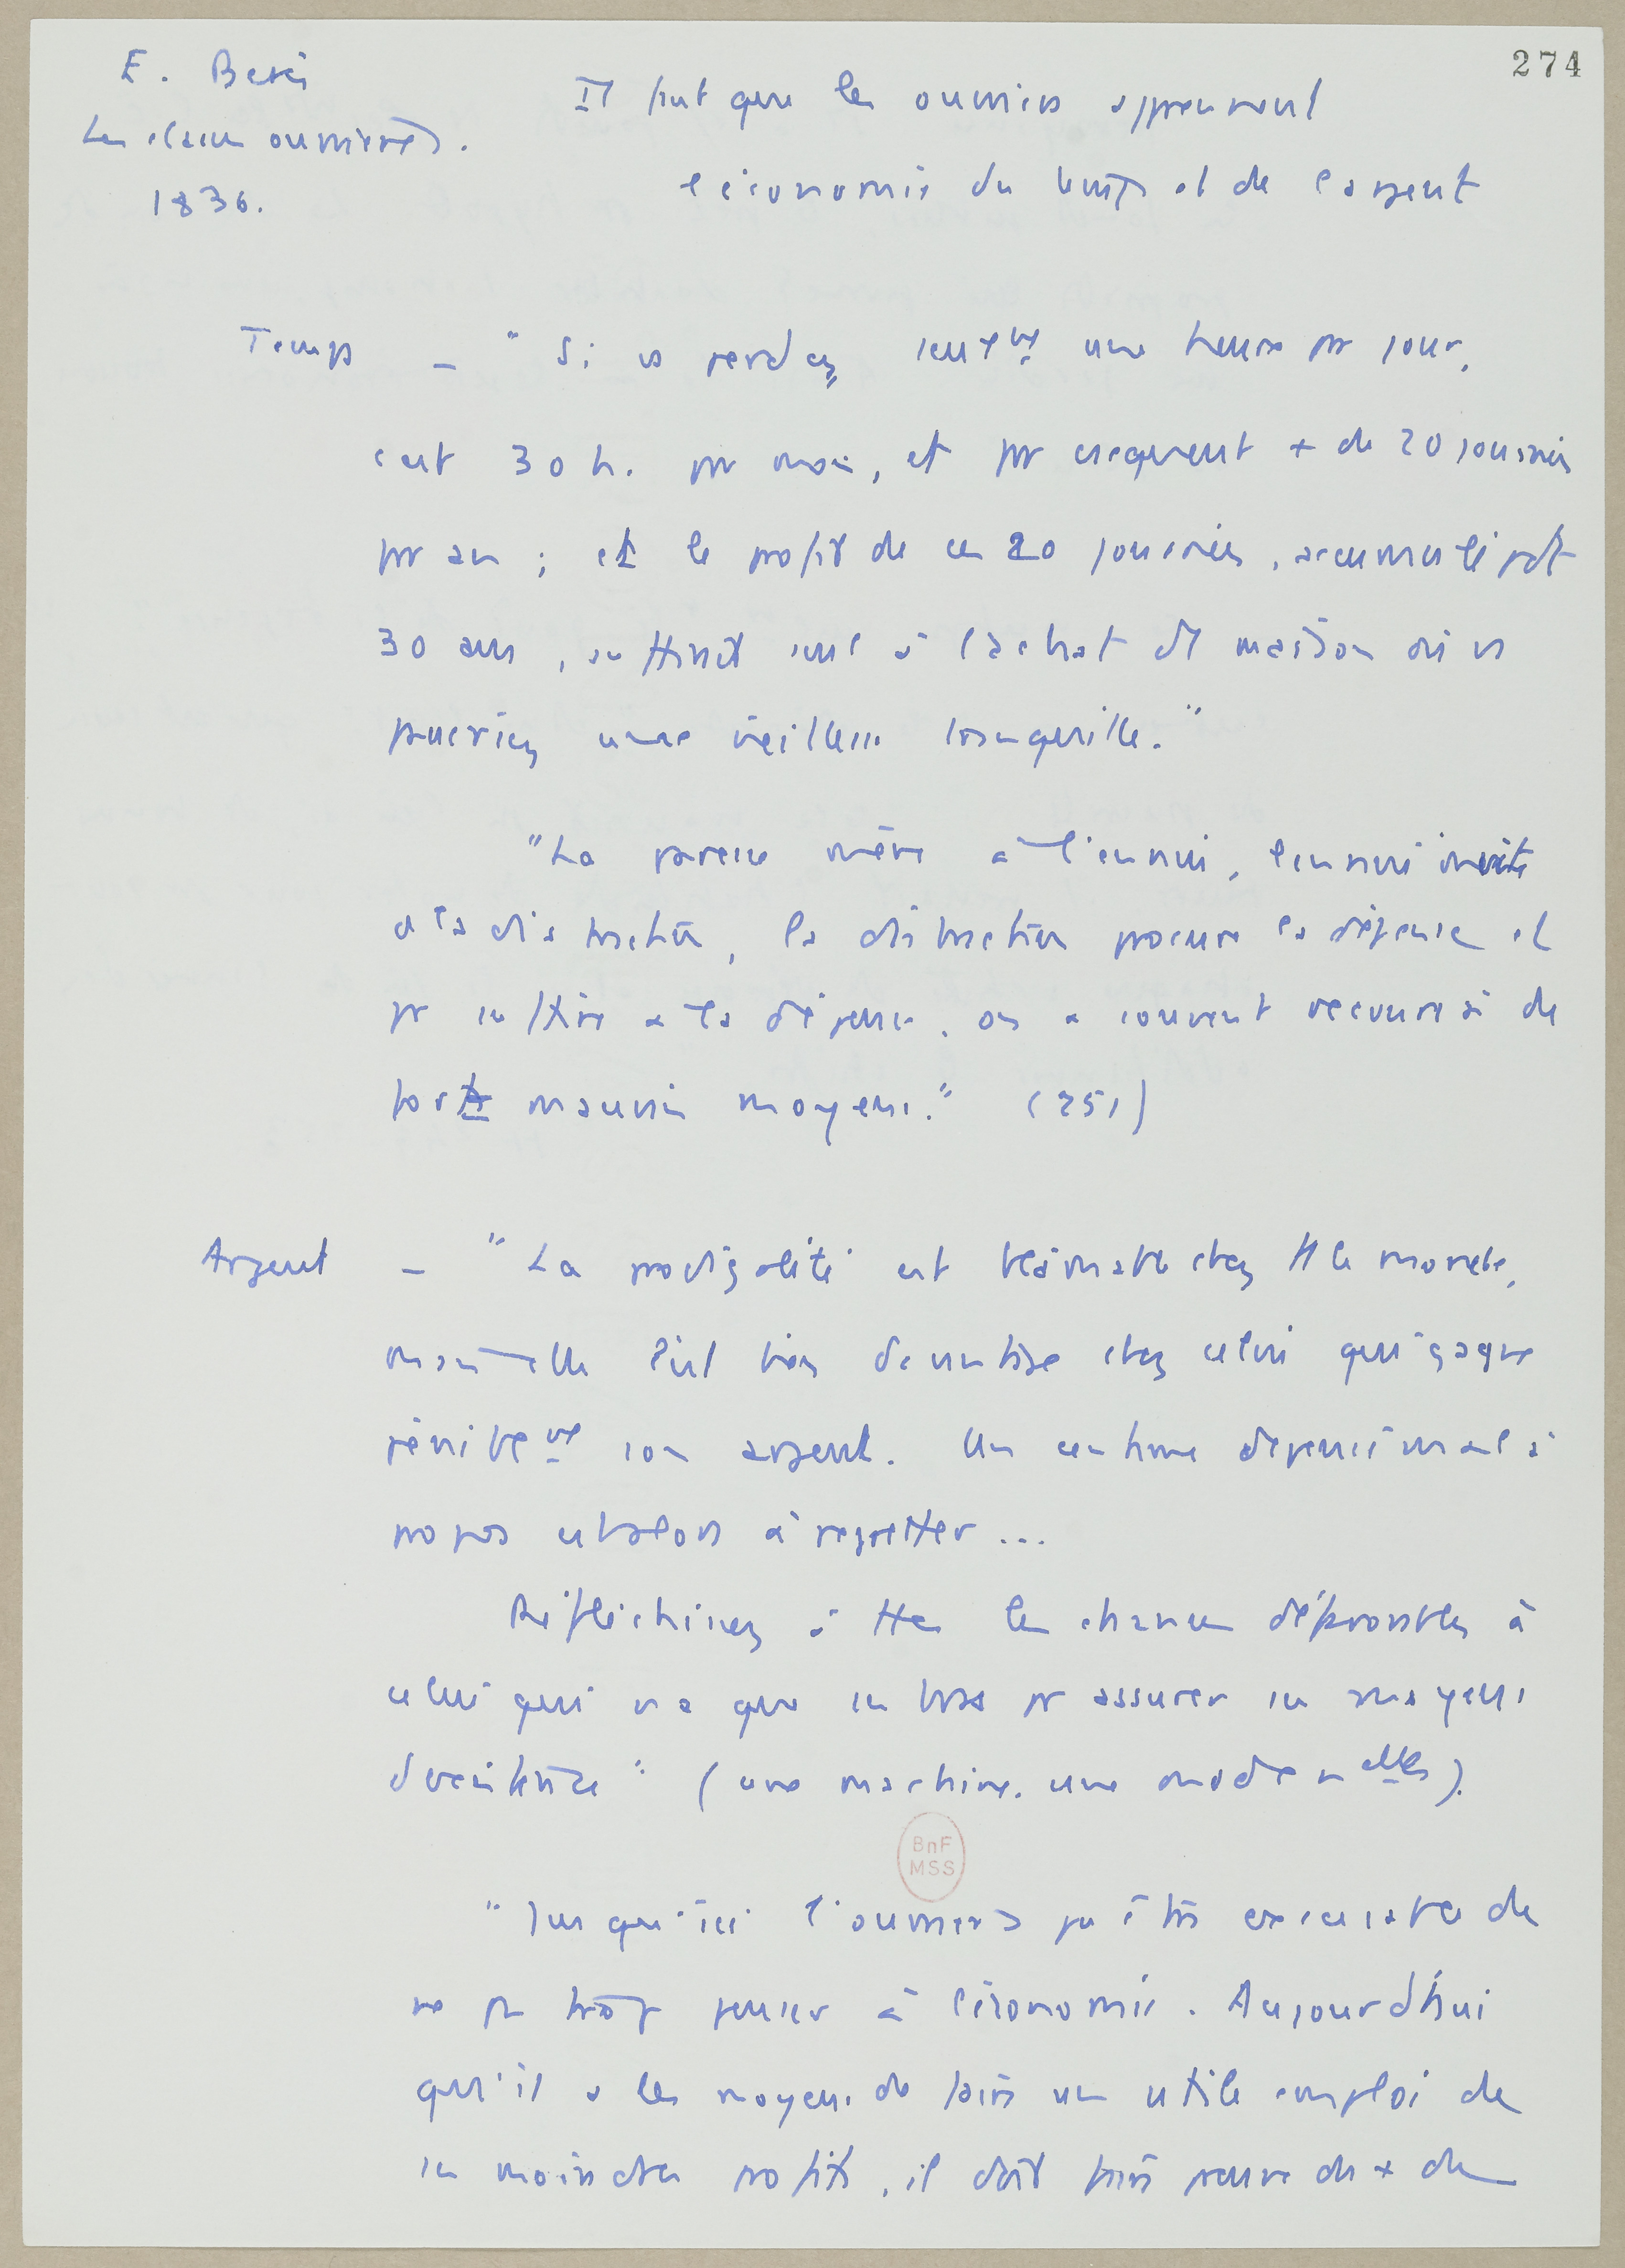 274
E. Berès
Les classes ouvrières.
1836.
Il faut que les ouvriers apprennent
l'économie du temps et de l'argent
Temps – " Si vs perdez seulemt une heure pr jour,
c'est 30 h. pr mois, et pr cséquent + de 20 journées
pr an ; et le profit de ces 20 journées, accumulé pdt
30 ans, suffirait seul à l'achat d'1 maison où vs
passeriez une vieillesse tranquille."
"La paresse mène à l'ennui, l'ennui invite
à la distraction, la distraction procure la dépense et
pr suffire à la dépense, on a souvent recours à de
forts mauvais moyens." (251)
Argent – " La prodigalité est blâmable chez tt le monde,
mais elle l'est bien davantage chez celui qui gagne
péniblemt son argent. Un centime dépensé mal à
propos est alors à regretter ...
Réfléchissez à ttes les chances défavorables à
celui qui n'a que ses bras pr assurer ses moyens
d'existence " (une machine, une mode nelles).
" Jusqu'ici l'ouvrier a pu être excusable de
ne pas trop penser à l'économie. Aujourd'hui
qu'il a les moyens de faire un utile emploi de
ses moindres profits, il doit faire preuve de + de
BnF
MSS